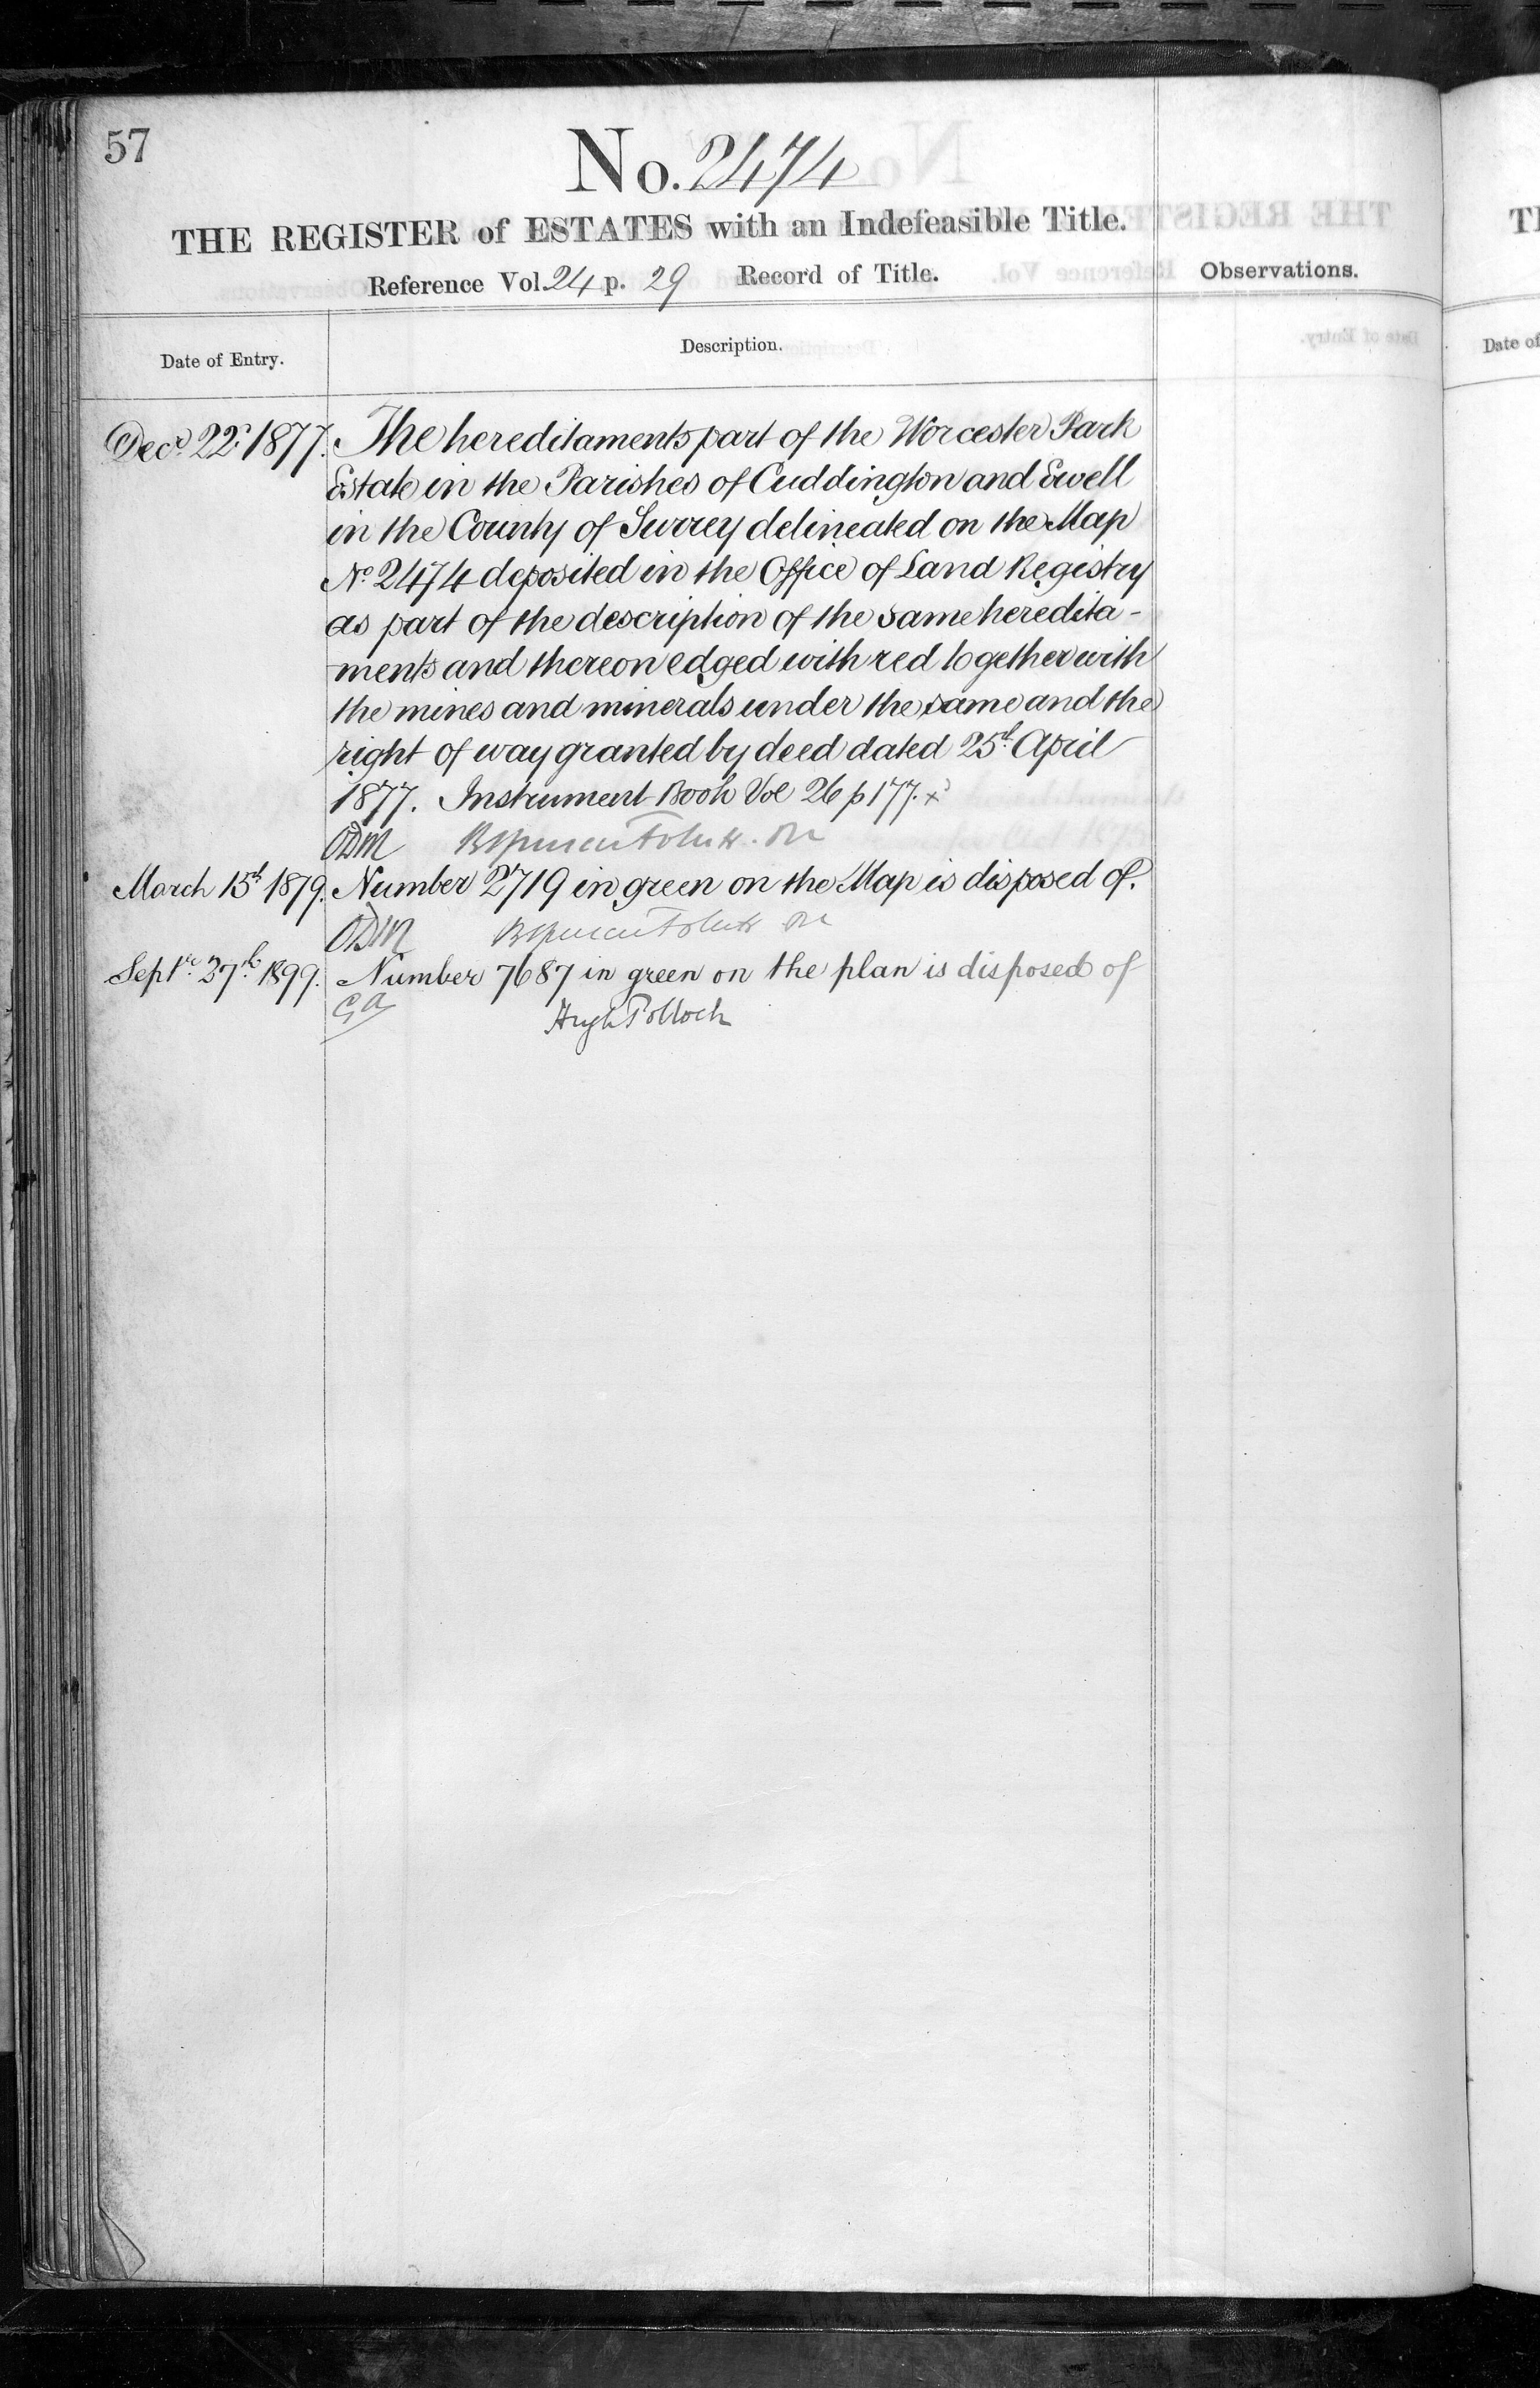 57
No. 2474
THE REGISTER of ESTATES with an Indefeasible Title.
Reference Vol. 24 p. 29 Record of Title.
Observations.
Date of Entry.
Description.
Decr 22d 1877. The hereditaments part of the Worcester Park
Estate in the Parishes of Cuddington and Ewell
in the County of Surrey delineated on the Map
No 2474 deposited in the Office of Land Registry
as part of the description of the same heredita-
-ments and thereon edged with red together with
the mines and minerals under the same and the
right of way granted by deed dated 25th April
1877. Instrument Book Vol 26 p 177. x
ODM
March 15th 1879. Number 2719 in green on the Map is disposed of.
ODM
Septr 27th 1899. Number 7687 in green on the plan is disposed of
GA Hugh Pollock
TH
Date of